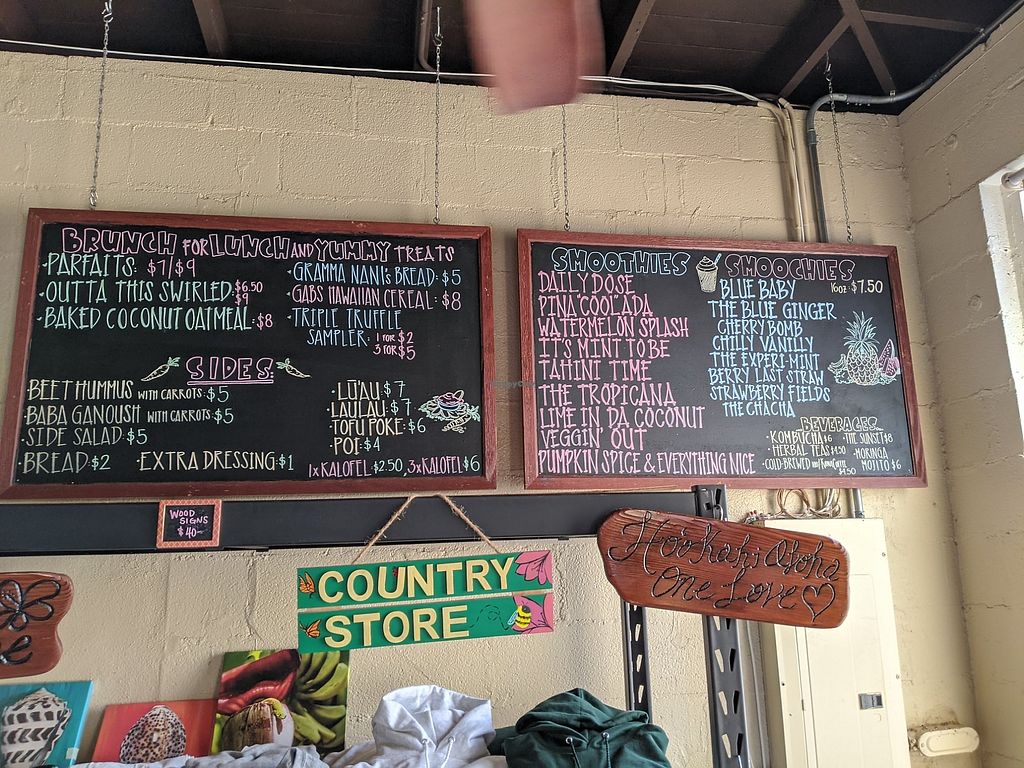 BRUNCH FOR LUNCH AND YUMMY TREATS
·PARFAITS: $7/$9
·OUTTA THIS SWIRLED: $6.50
$9
·BAKED COCONUT OATMEAL: $8
·GRAMMA NANI'S BREAD: $5
·GABS HAWAIIAN CEREAL: $8
·TRIPLE TRUFFLE
SAMPLER: 1 FOR $2
3 FOR $5
SIDES:
BEET HUMMUS WITH CARROTS: $5
·BABA GANOUSH WITH CARROTS: $5
·SIDE SALAD: $5
·BREAD: $2
·EXTRA DRESSING: $1
·LŪ'AU: $7
·LAULAU: $7
·TOFU POKE: $6
·POI: $4
1X KALOFEL $2.50, 3X KALOFEL $6
SMOOTHIES
DAILY DOSE
PINA "COOL"ADA
WATERMELON SPLASH
IT'S MINT TO BE
TAHINI TIME
THE TROPICANA
LIME IN DA COCONUT
VEGGIN' OUT
PUMPKIN SPICE & EVERYTHING NICE
SMOOCHIES
16oz $7.50
BLUE BABY
THE BLUE GINGER
CHERRY BOMB
CHILLY VANILLY
THE EXPERI-MINT
BERRY LAST STRAW
STRAWBERRY FIELDS
THE CHACHA
BEVERAGES
·KOMBUCHA $6
·HERBAL TEAS $4.50
·COLD-BREWED
$4.50
·THE SUNSET $8
·MORINGA
MOJITO $6
WOOD
SIGNS
$40
COUNTRY
STORE
Ho'okahi Aloha
One Love